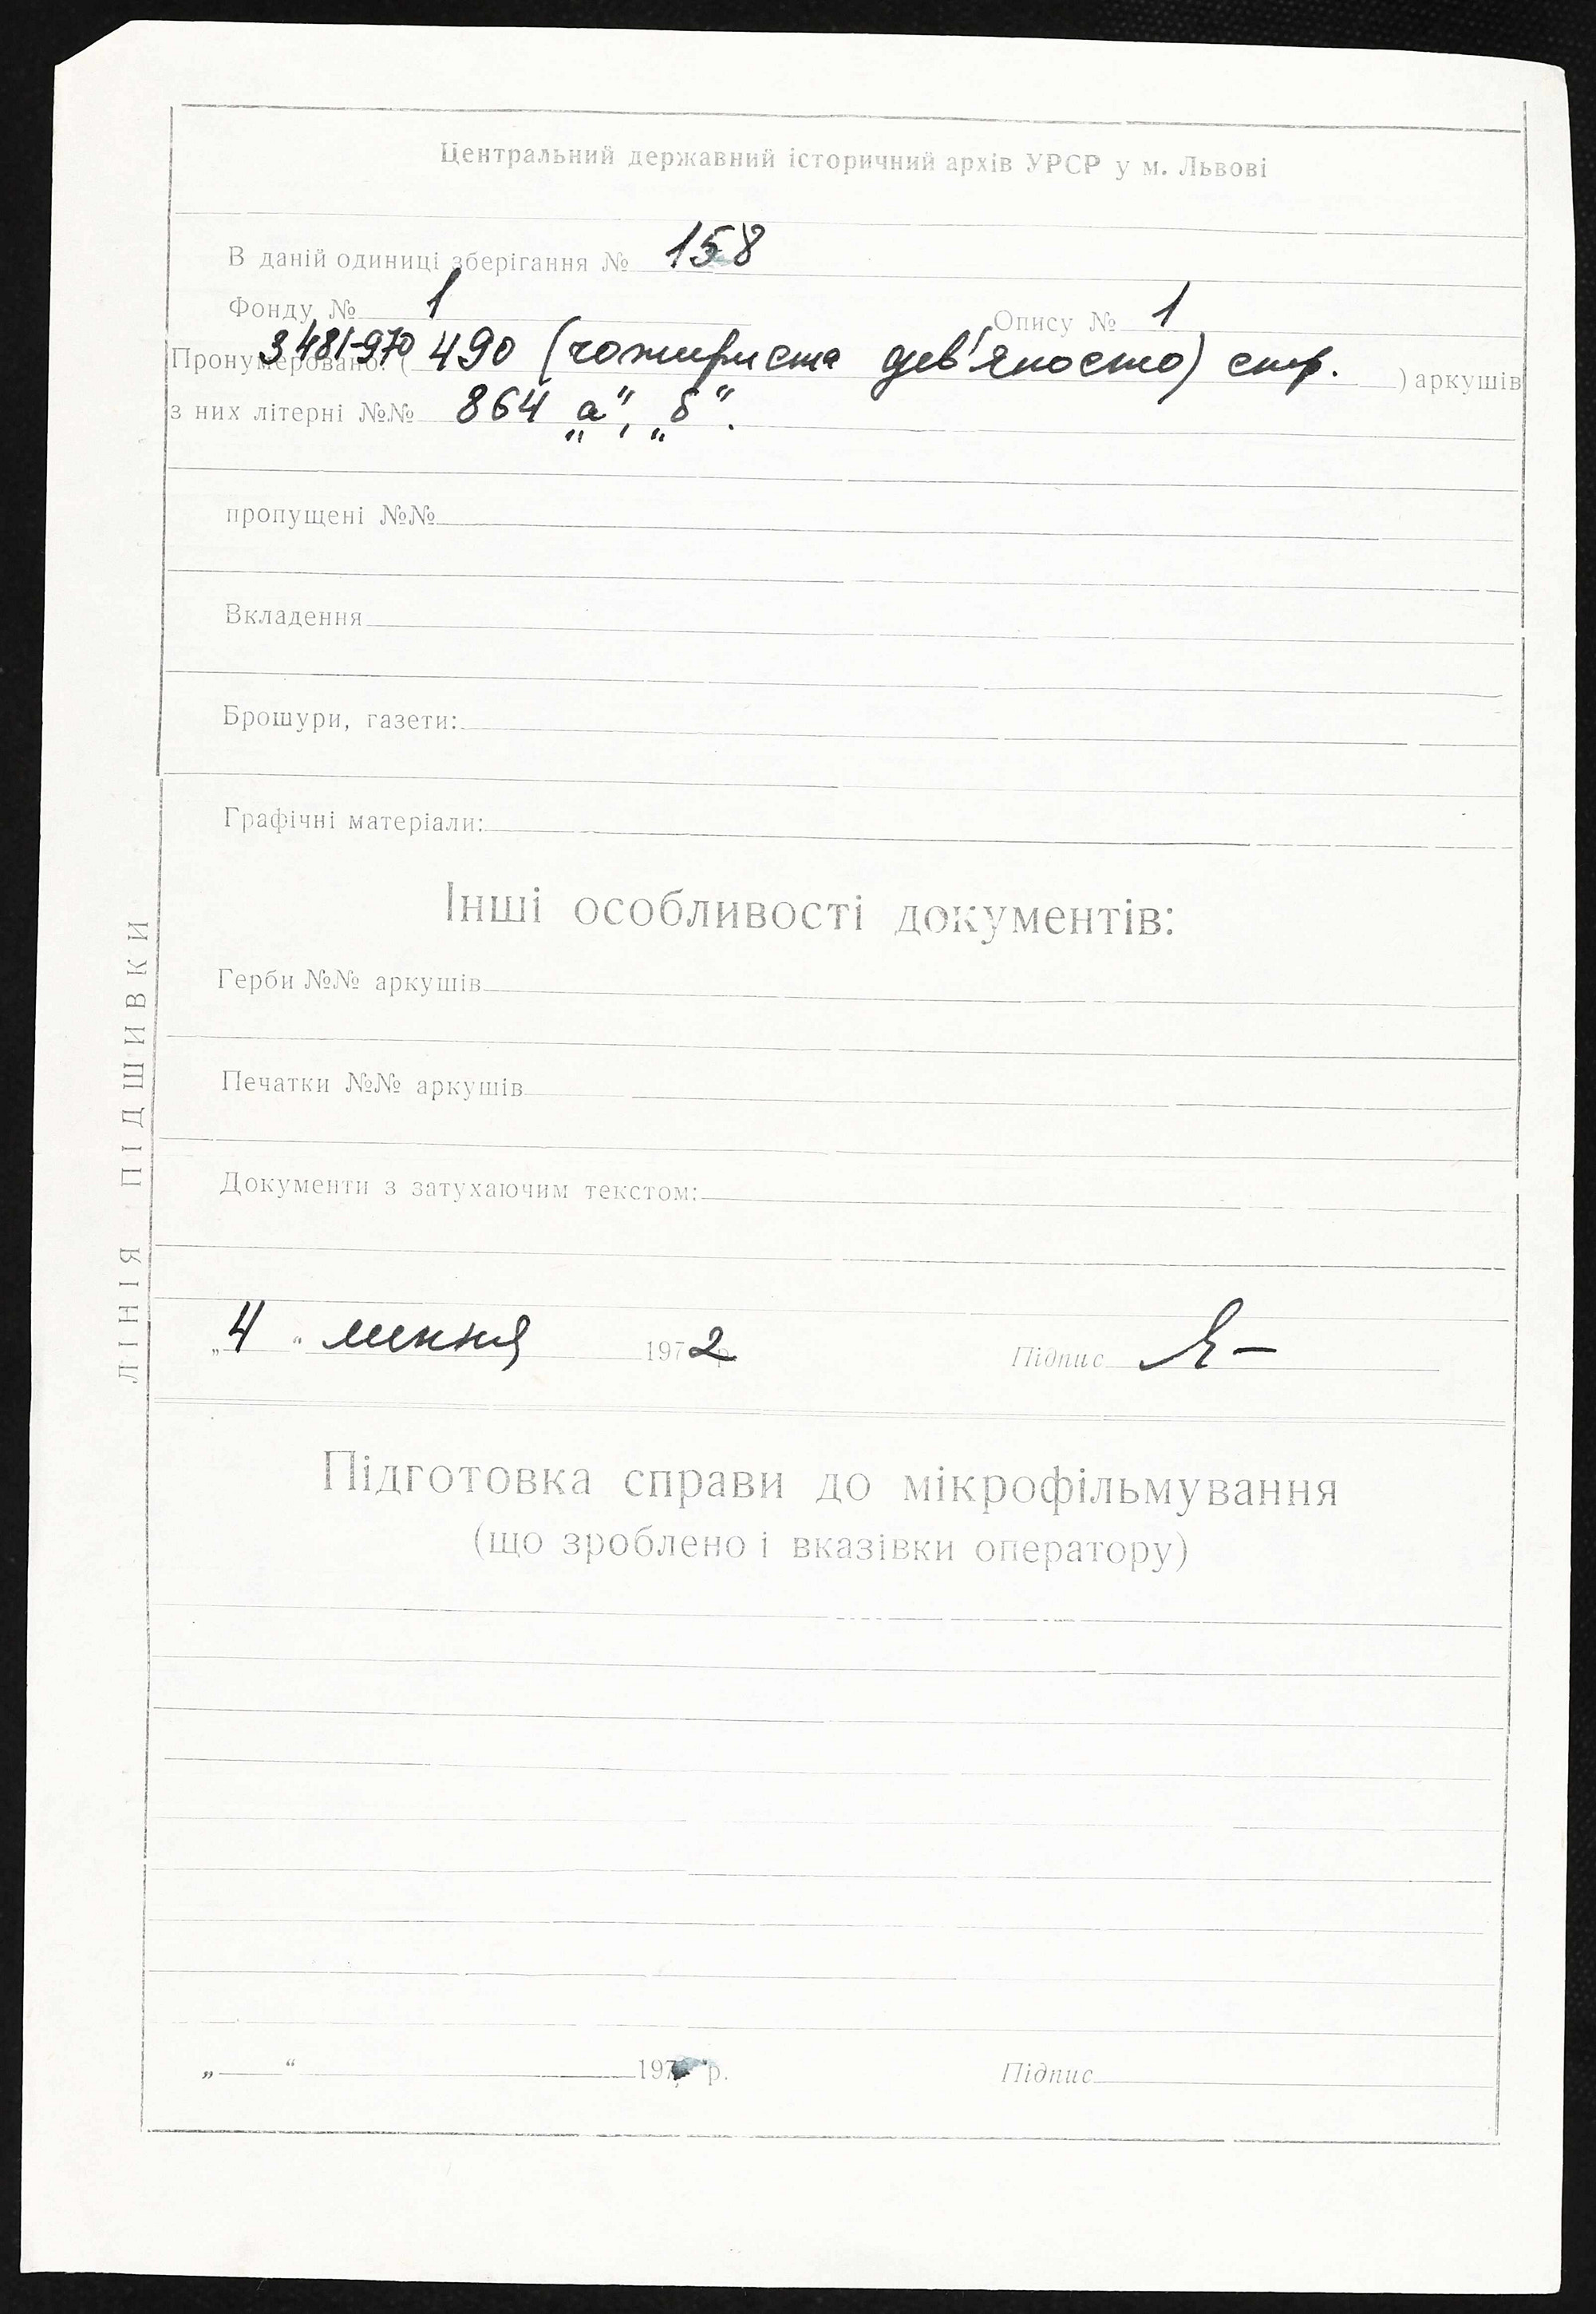 Центральний державний історичний архів УРСР у м. Львові
В даній одиниці зберігання № 158
Фонду № 1 Опису № 1
З 481-970
Пронумеровано: ( 490 (чотириста дев'яносто) стр. ) аркушів
з них літерні №№ 864 „а", „б".
пропущені №№
Вкладення
Брошури, газети:
Графічні матеріали:
Інші особливості документів:
Герби №№ аркушів
Печатки №№ аркушів
Документи з затухаючим текстом:
„4" липня 1972 р. Підпис
Підготовка справи до мікрофільмування
(що зроблено і вказівки оператору)
„ “ 197 р. Підпис
ЛІНІЯ ПІДШИВКИ